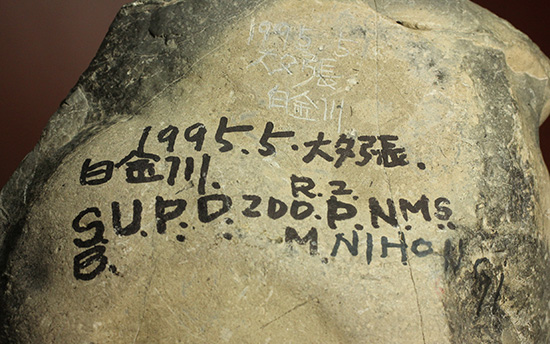 1995.5.
大夕張
白金川
1995.5. 大夕張.
白金川.
R.2.
S.U.P.D.200.P.N.M.S.
B. M.NIHON